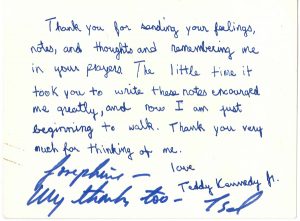 Thank you for sending your feelings,
notes, and thoughts and remembering me
in your prayers. The little time it
took you to write these notes encouraged
me greatly, and now I am just
beginning to walk. Thank you very
much for thinking of me.
love
Teddy Kennedy Jr.
Josephine —
My thanks too —